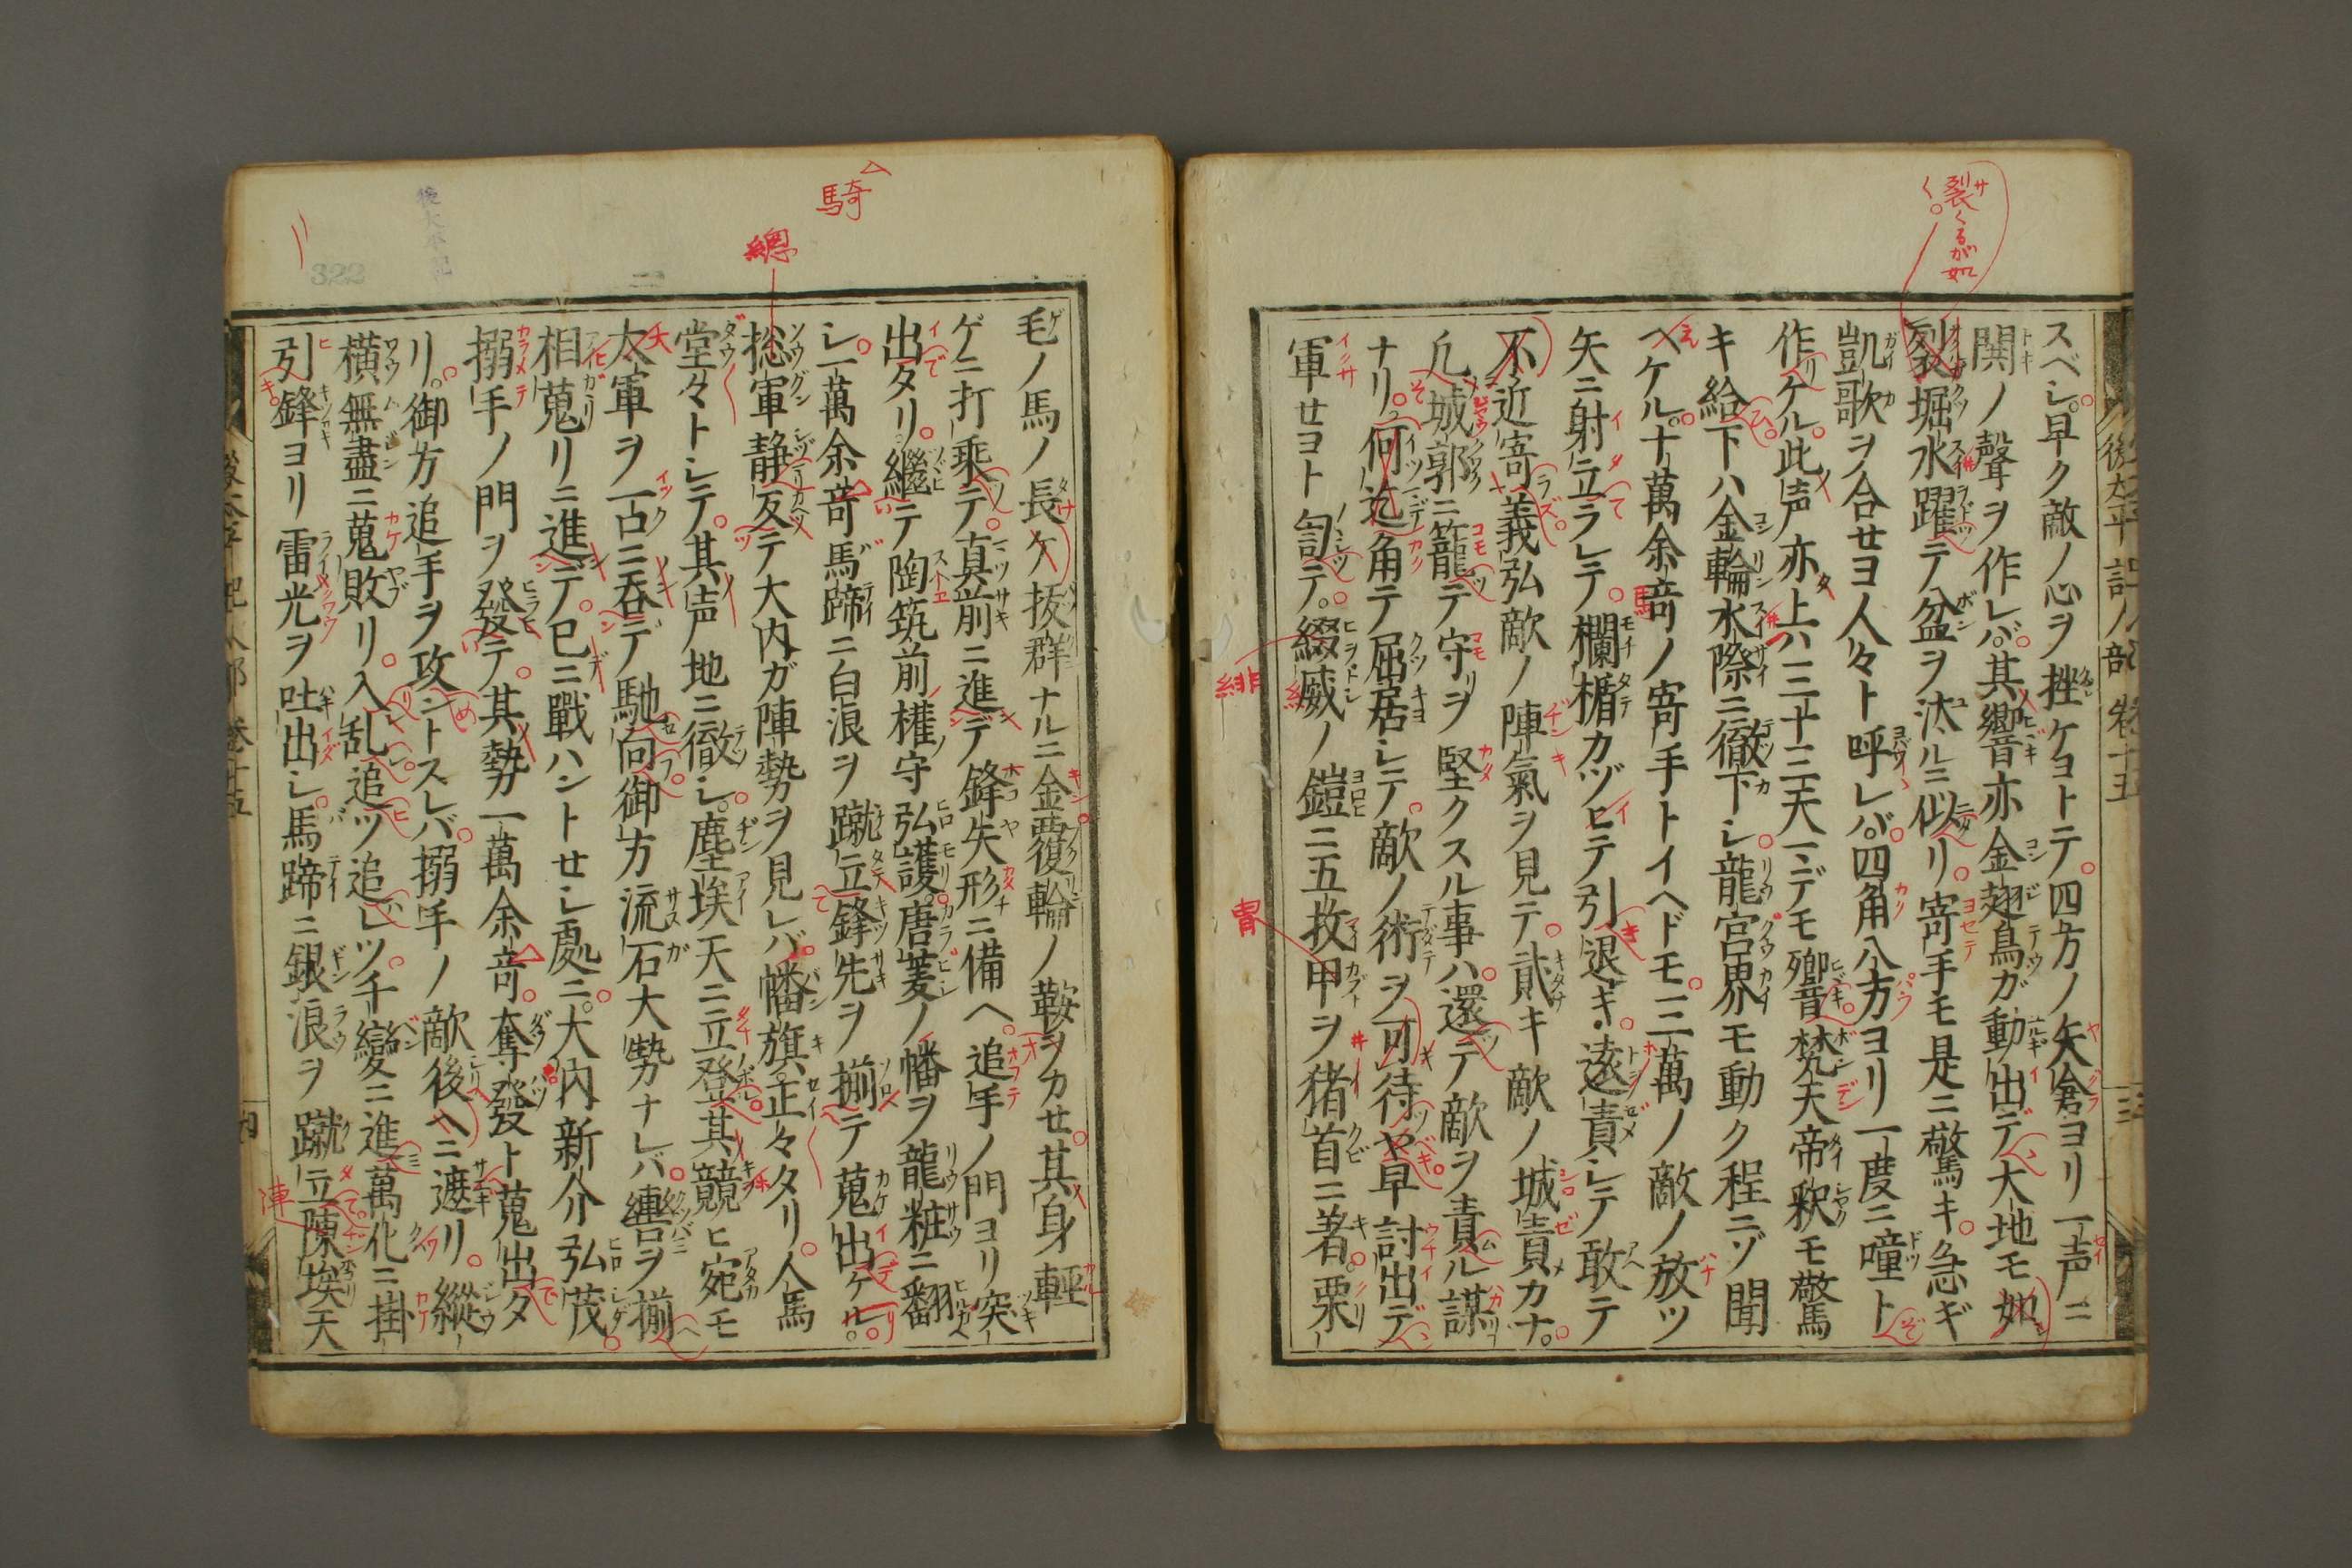 スベシ早ク敵ノ心ヲ挫ケヨトテ四方ノ矢倉ヨリ一声ニ
関ノ聲ヲ作レバ其響亦金翅鳥ガ動出デ大地モ如
裂堀水躍テ盆ヲ汰ルニ似リ寄手モ是ニ驚キ急ギ
凱歌ヲ合セヨ人々ト呼レバ四角八方ヨリ一度ニ噇ト
作ケル此声亦上ハ三十三天マデモ響キ梵天帝釈モ驚
キ給下ハ金輪水際ニ徹下シ龍宮界モ動ク程ニゾ聞
ヘケル十萬余竒ノ寄手トイヘドモ三萬ノ敵ノ放ツ
矢ニ射立ラレテ欄楯カヅヒテ引退キ遠責シテ敢テ
不近寄義弘敵ノ陣氣ヲ見テ貳キ敵ノ城責カナ
凡城郭ニ籠テ守リヲ堅クスル事ハ還テ敵ヲ責ル謀
ナリ何迄角テ屈居シテ敵ノ術ヲ可待ヤ早討出デ
軍セヨト訇テ綴威ノ鎧ニ五枚甲ヲ猪首ニ著栗
毛ノ馬ノ長ケ抜群ナルニ金覆輪ノ鞍ヲカセ其身輕
ゲニ打乗テ真前ニ進デ鋒矢形ニ備ヘ追手ノ門ヨリ突
出タリ繼テ陶筑前權守弘護唐菱ノ幡ヲ龍粧ニ翻
シ一萬余竒馬蹄ニ白浪ヲ蹴立鋒先ヲ揃テ蒐出ケル
総軍静返テ大内ガ陣勢ヲ見レバ幡旗正々タリ人馬
堂々トシテ其声地ニ徹シ塵埃天ニ立登其競ヒ宛モ
大軍ヲ一口ニ呑デ馳向御方流石大勢ナレバ轡ヲ揃
相蒐リニ進デ已ニ戰ハントセシ處ニ大内新介弘茂
搦手ノ門ヲ發テ其勢一萬余竒奪發ト蒐出タ
リ御方追手ヲ攻ントスレバ搦手ノ敵後ヘニ遮リ縱
横無盡ニ蒐敗リ入乱追ツ追レツ千變ニ進萬化ニ掛
引鋒ヨリ雷光ヲ吐出シ馬蹄ニ銀浪ヲ蹴立陳埃天
後太平記人部 巻十五
三
裂くるが如
く
緋
冑
騎
總
陣
後太平記
322